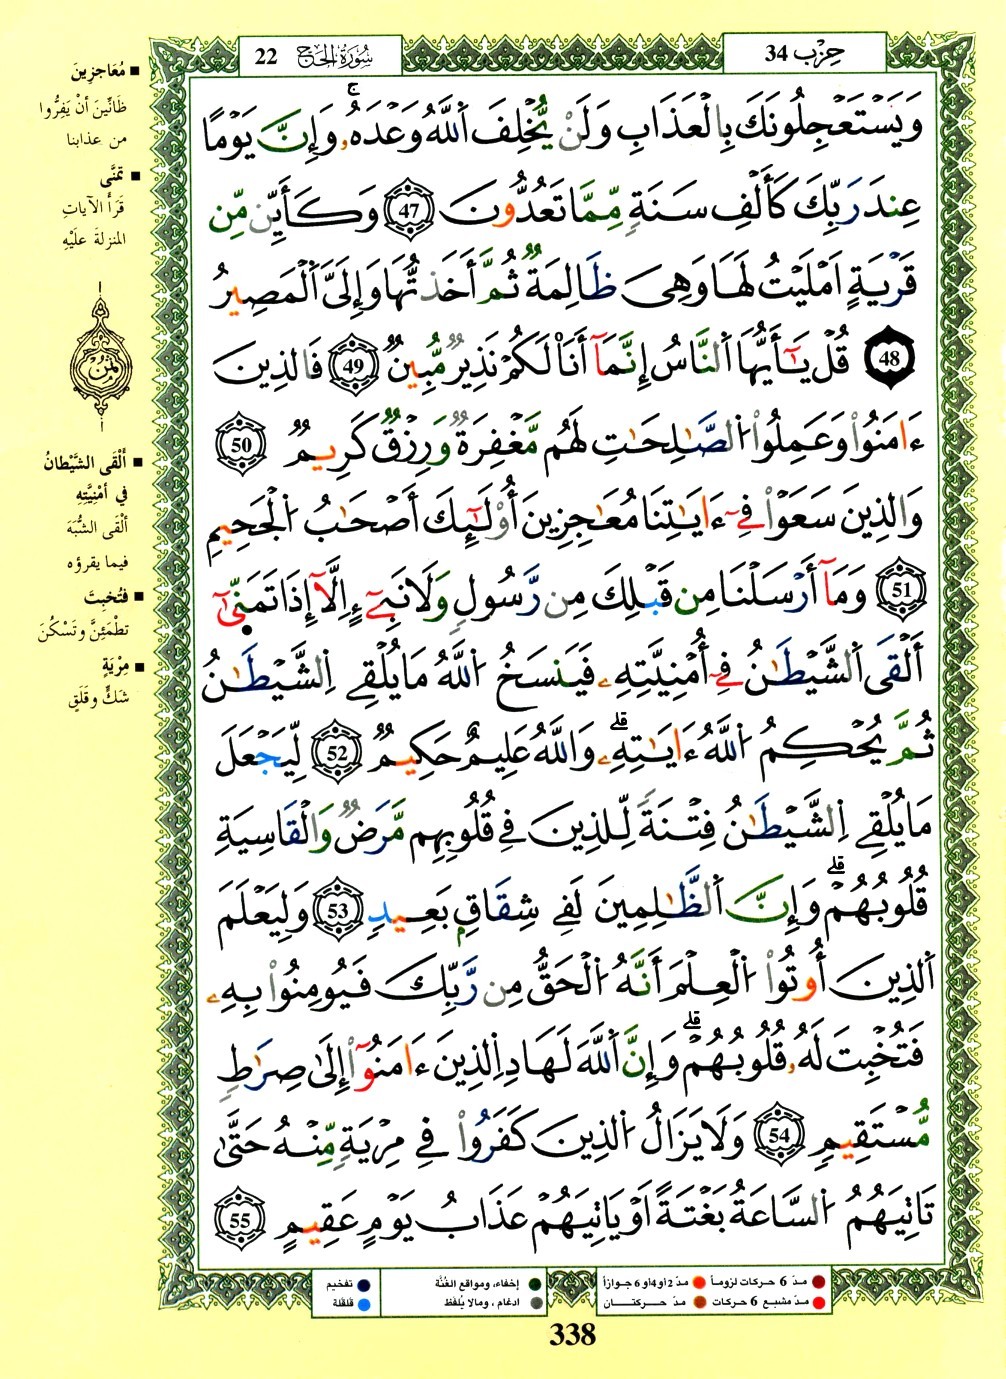 سُورَةُ الحَجّ 22
حِزْب 34
وَيَسْتَعْجِلُونَكَ بِالْعَذَابِ وَلَنْ يُّخْلِفَ اَللَّهُ وَعْدَهُۥ ۚ وَإِنَّ يَوْمًا
عِندَ رَبِّكَ كَأَلْفِ سَنَةٍ مِّمَّا تَعُدُّونَ 47 وَكَأَيِّن مِّن
قَرْيَةٍ اَمْلَيْتُ لَهَا وَهِيَ ظَالِمَةٌ ثُمَّ أَخَذتُّهَا وَإِلَيَّ اَلْمَصِيرُ
48 قُلْ يَـٰٓأَيُّهَا اَلنَّاسُ إِنَّمَآ أَنَا لَكُمْ نَذِيرٌ مُّبِينٌ 49 فَالذِينَ
ءَامَنُواْ وَعَمِلُواْ الصَّـٰلِحَـٰتِ لَهُم مَّغْفِرَةٌ وَرِزْقٌ كَرِيمٌ 50
وَالذِينَ سَعَوْاْ فِيٓ ءَايَـٰتِنَا مُعَـٰجِزِينَ أُوْلَـٰٓئِكَ أَصْحَـٰبُ اُلْجَحِيمِ
51 وَمَآ أَرْسَلْنَا مِن قَبْلِكَ مِن رَّسُولٍ وَلَا نَبِيٓءٍ اِلَّآ إِذَا تَمَنّ۪يٰٓ
أَلْقَى اَلشَّيْطَـٰنُ فِيٓ أُمْنِيَّتِهِۦ فَيَنسَخُ اُللَّهُ مَا يُلْقِي اِلشَّيْطَـٰنُ
ثُمَّ يُحْكِمُ اُللَّهُ ءَايَـٰتِهِۦ ۗ وَاللَّهُ عَلِيمٌ حَكِيمٌ 52 لِّيَجْعَلَ
مَا يُلْقِي اِلشَّيْطَـٰنُ فِتْنَةً لِّلذِينَ فِي قُلُوبِهِم مَّرَضٌ وَالْقَاسِيَةِ
قُلُوبُهُمْ ۗ وَإِنَّ اَلظَّـٰلِمِينَ لَفِي شِقَاقٍ بَعِيدٍ 53 وَلِيَعْلَمَ
اَلذِينَ أُوتُواْ اُلْعِلْمَ أَنَّهُ اُلْحَقُّ مِن رَّبِّكَ فَيُومِنُواْ بِهِۦ
فَتُخْبِتَ لَهُۥ قُلُوبُهُمْ ۗ وَإِنَّ اَللَّهَ لَهَادِ اِلذِينَ ءَامَنُوٓاْ إِلَىٰ صِرَٰطٍ
مُّسْتَقِيمٍ 54 وَلَا يَزَالُ اُلذِينَ كَفَرُواْ فِي مِرْيَةٍ مِّنْهُ حَتَّىٰ
تَاتِيَهُمُ اُلسَّاعَةُ بَغْتَةً اَوْ يَاتِيَهُمْ عَذَابُ يَوْمٍ عَقِيمٍ 55
■ مُعَاجِزِينَ
ظَانِّينَ أنْ يَفِرُّوا
من عذابنا
■ تمنَّى
قَرَأ الآياتِ
المنزلةَ علَيْهِ
ثُمُن
■ ألْقَى الشَّيْطانُ
في أمْنِيَّتِه
ألْقى الشُّبَهَ
فيما يقرؤه
■ فتُخبِتَ
تطْمَئِنَّ وتَسْكُنَ
■ مِرْيَةٍ
شكٍّ وقلَقٍ
مدّ 6 حركات لزوماً
مدّ 2 أو 4 أو 6 جوازاً
مدّ مشبع 6 حركات
مدّ حركتان
إخفاء، ومواقع الغُنَّة
ادغام ، ومالا يُلفَظ
تفخيم
قلقلة
338